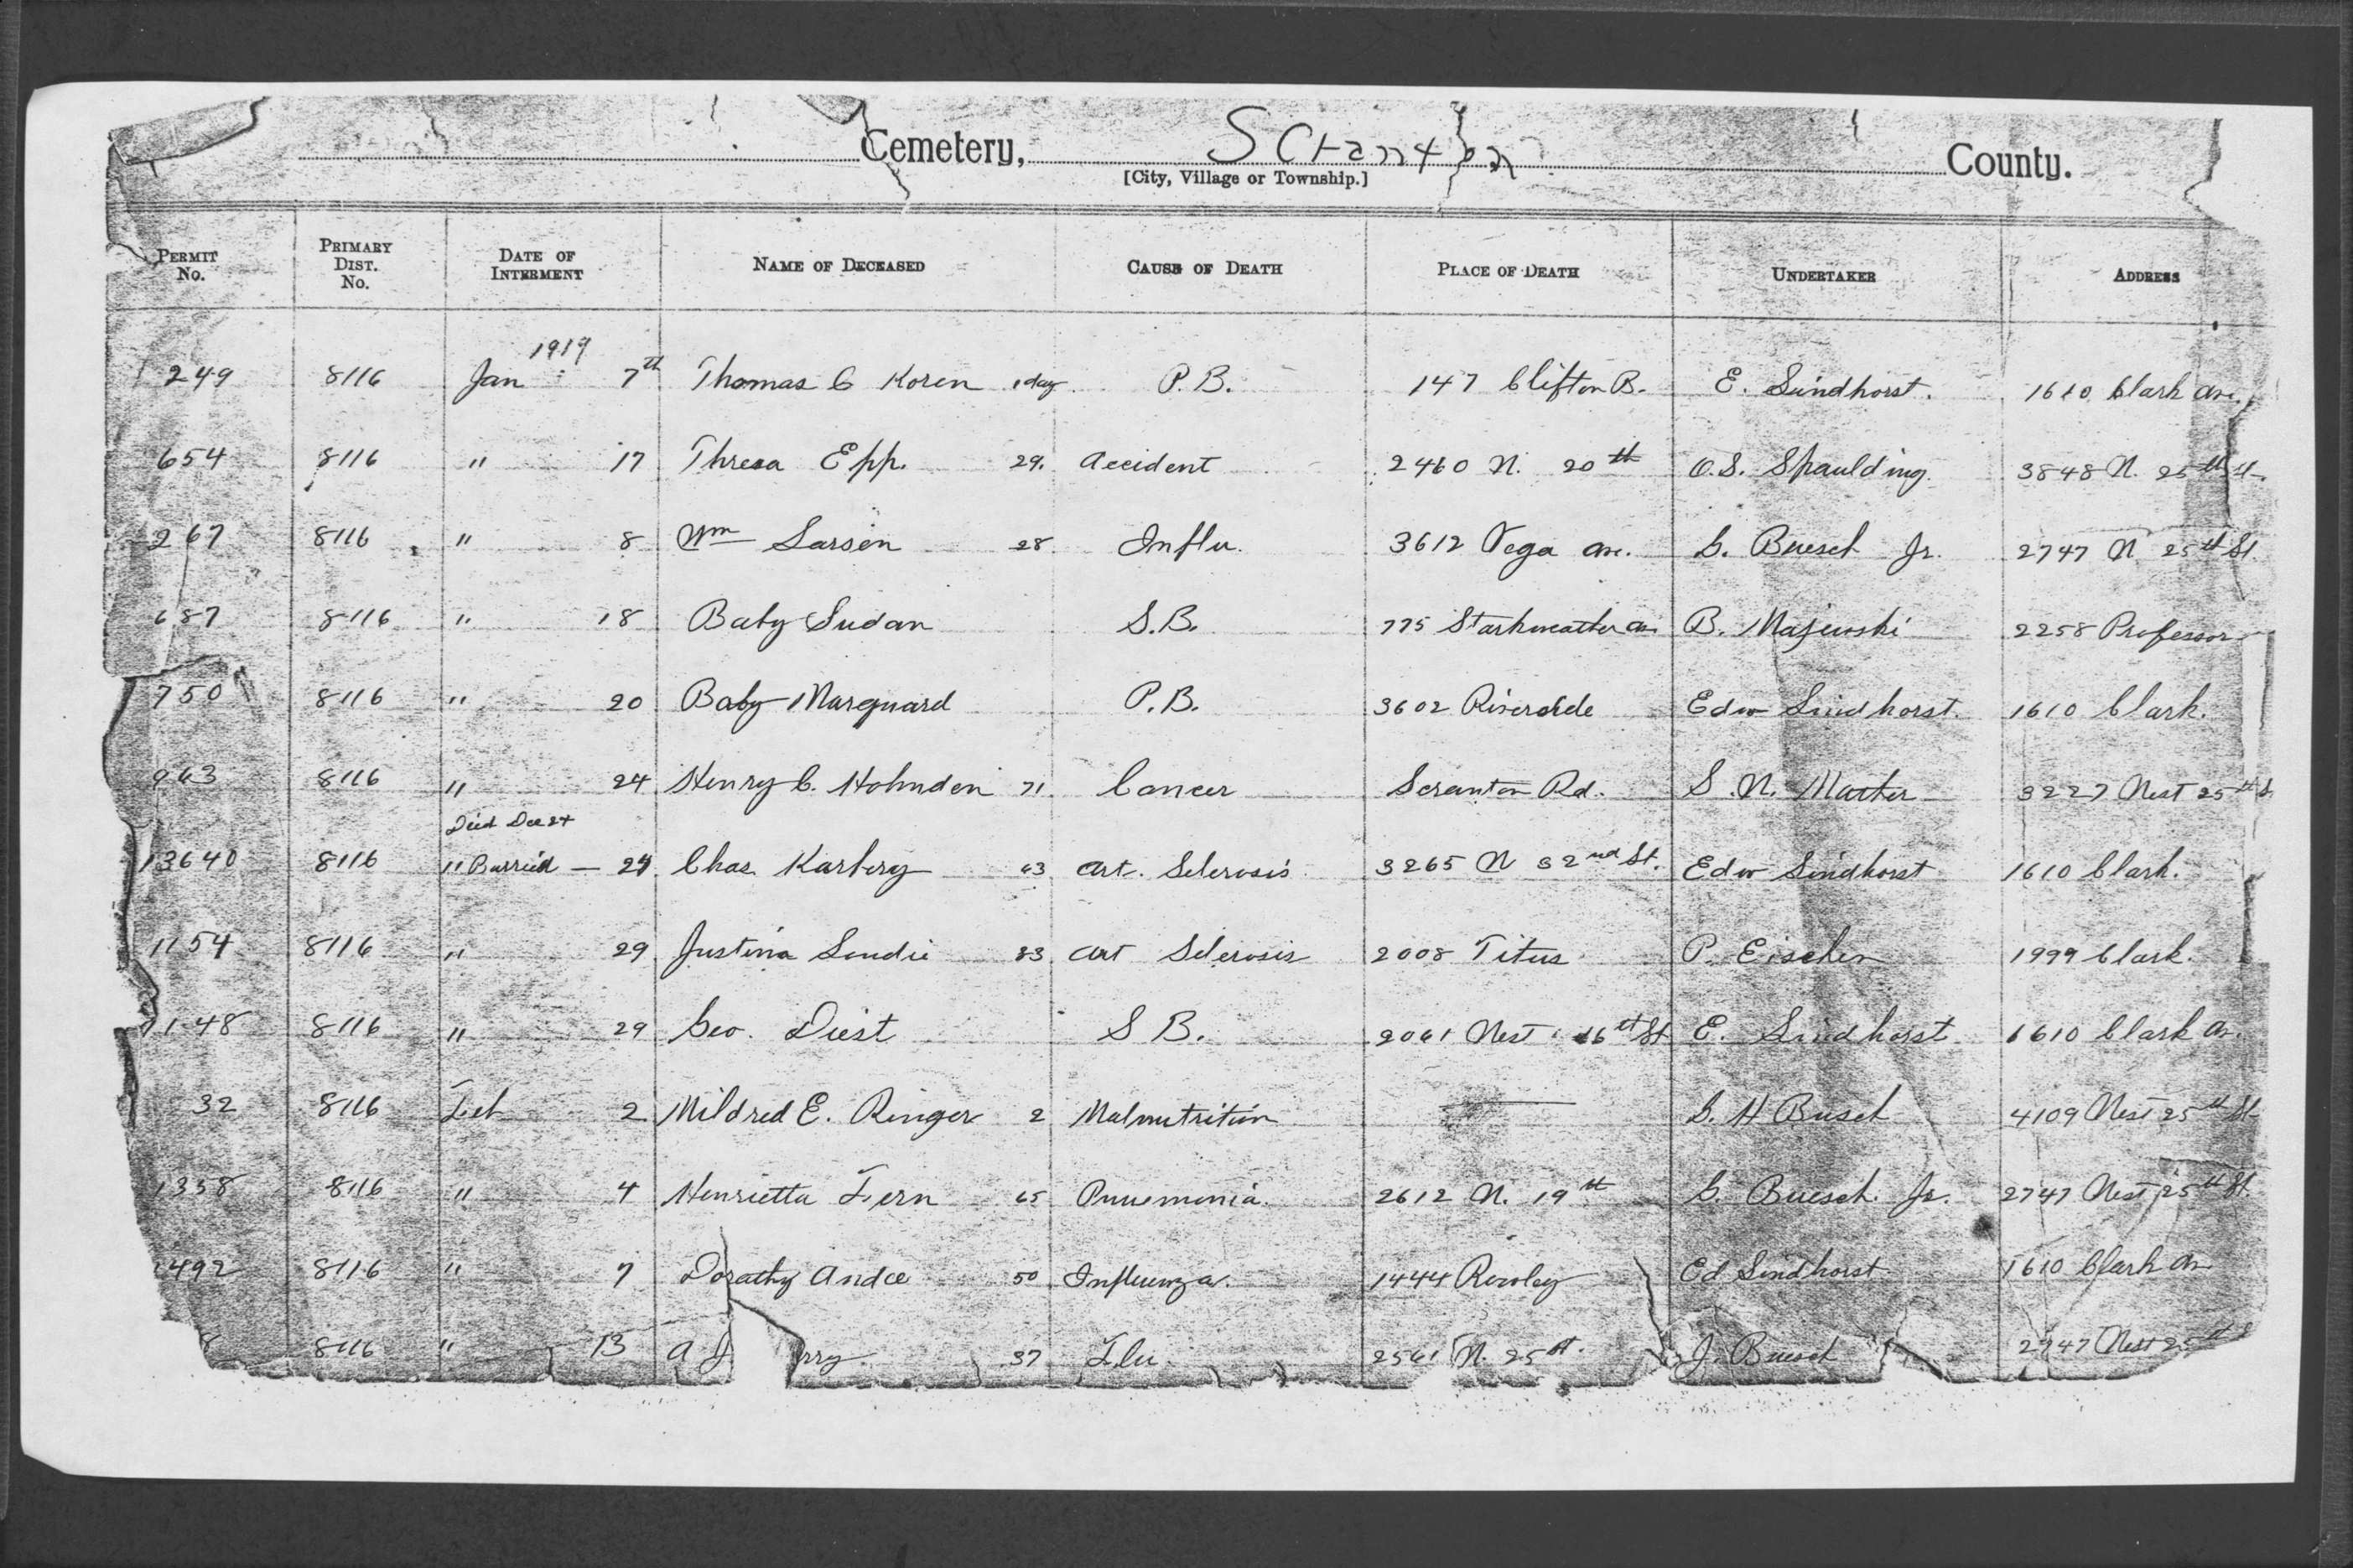 Cemetery, Scranton County.
[City, Village or Township.]
PERMIT No. PRIMARY DIST. No. DATE OF INTERMENT NAME OF DECEASED CAUSE OF DEATH PLACE OF DEATH UNDERTAKER ADDRESS
1919
249 8116 Jan 7th Thomas C Koren 1 day P.B. 147 Clifton B. E. Lindhorst. 1610 Clark Av.
654 8116 " 17 Thresa Epp. 29. Accident 2460 W. 20th O.S. Spaulding 3848 W. 25th St.
267 8116 " 8 Wm Larsen 28 Influ. 3612 Vega Av. G. Buesch Jr. 2747 W 25th St.
687 8116 " 18 Baby Sudan S.B. 775 Starkweather Av B. Majewski 2258 Professor
750 8116 " 20 Baby Marquard P.B. 3602 Riverside Edw Lindhorst. 1610 Clark.
963 8116 " 24 Henry C. Hohnden 71 Cancer Scranton Rd. S. N. Marter 3227 West 25th S
Died Dec 24
13640 8116 " Burried — 24. Chas Karberg 63 Art. Sclerosis 3265 W 32nd St. Edw Lindhorst 1610 Clark.
1154 8116 " 29 Justina Lendie 83 Art Sclerosis 2008 Titus P. Eischen 1999 Clark.
1148 8116 " 29 Geo. Diest S B. 2061 West 16th St E. Lindhorst 1610 Clark Av.
32 8116 Feb 2 Mildred E. Ringer 2 Malnutrition — G. H Busch 4109 West 25th St
1358 8116 " 4 Henrietta Fern 65 Pnuemonia. 2612 W. 19th G. Buesch Jr. 2747 West 25th St.
1492 8116 " 7 Dorathy 50 Influenza. 1444 Rowley Ed Lindhorst 1610 Clark Av
8 8116 " 13 A J rry 37 Flu. 2561 W. 25th. J. Buesch 2747 West 25th S